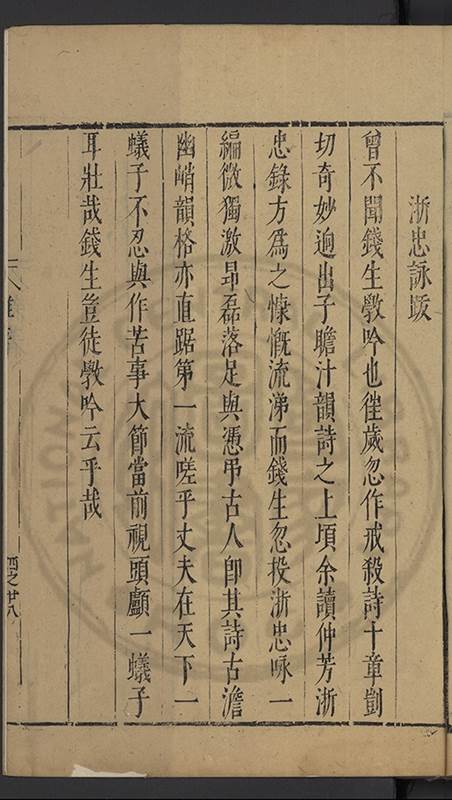 浙忠詠䟦
曾不聞錢生斅吟也徃歲忽作戒殺詩十章剴
切奇妙逈出子瞻汁韻詩之上頃余讀仲芳浙
忠錄方爲之慷慨流涕而錢生忽投浙忠咏一
編微獨激昻磊落足與憑弔古人卽其詩古澹
幽峭韻格亦直踞第一流嗟乎丈夫在天下一
蟻子不忍與作苦事大節當前視頭顱一蟻子
耳壯哉錢生豈徒斅吟云乎哉
四之廿八